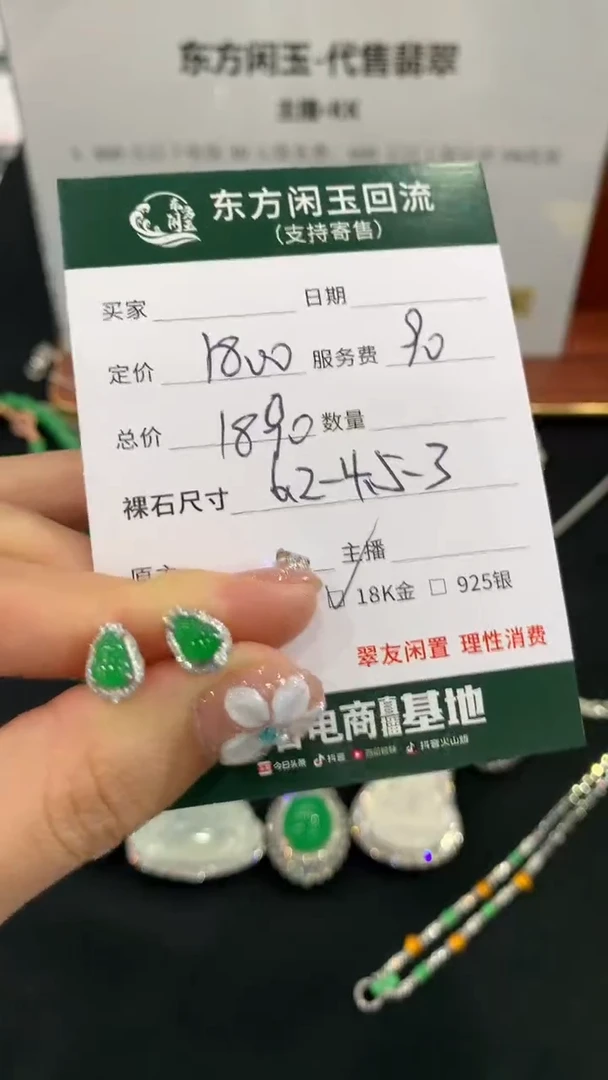 东方闲玉·代售翡翠
东方闲玉
东方闲玉回流
(支持寄售)
买家 日期
定价 1800 服务费 90
总价 1890 数量
裸石尺寸 6.2-4.5-3
主播
18K金 □ 925银
翠友闲置 理性消费
电商直播基地
今日头条 抖音 西瓜视频 抖音火山版